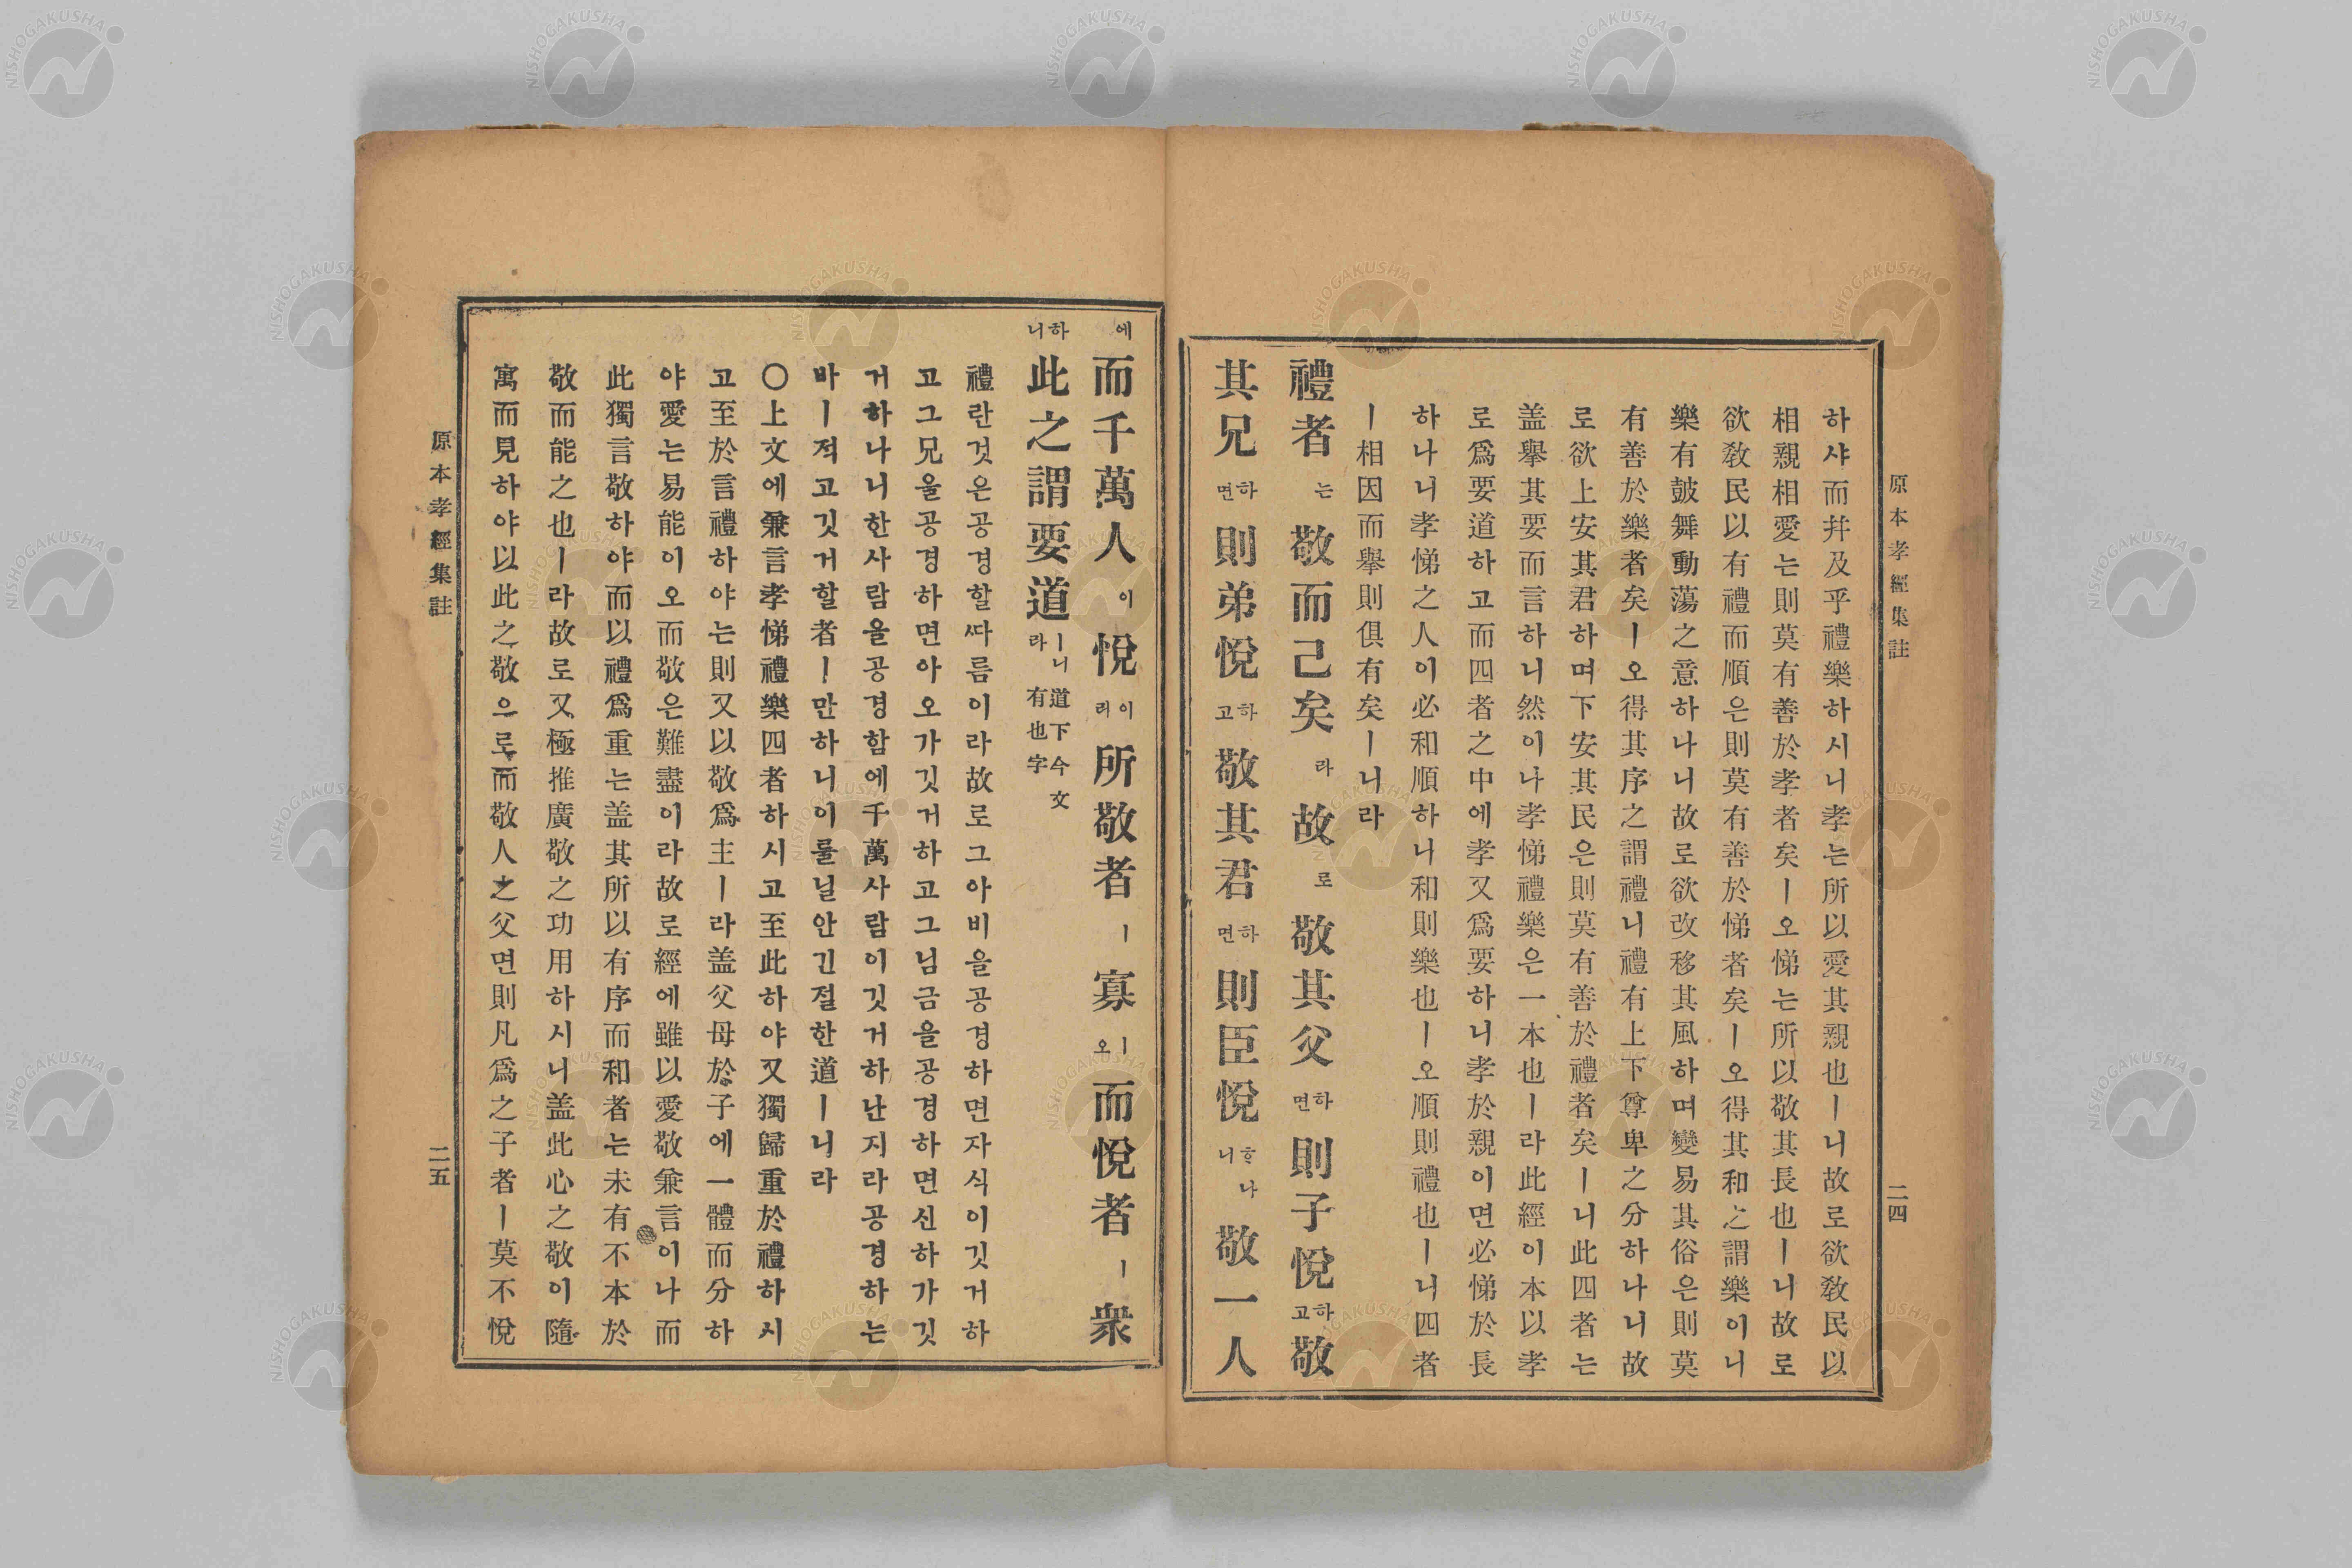 原本孝經集註 二四
하샤而幷及乎禮樂하시니孝는所以愛其親也ㅣ니故로欲敎民以
相親相愛는則莫有善於孝者矣ㅣ오悌는所以敬其長也ㅣ니故로
欲敎民以有禮而順은則莫有善於悌者矣ㅣ오得其和之謂樂이니
樂有皷舞動蕩之意하나니故로欲改移其風하며變易其俗은則莫
有善於樂者矣ㅣ오得其序之謂禮니禮有上下尊卑之分하나니故
로欲上安其君하며下安其民은則莫有善於禮者矣ㅣ니此四者는
盖擧其要而言하니然이나孝悌禮樂은一本也ㅣ라此經이本以孝
로爲要道하고而四者之中에孝又爲要하니孝於親이면必悌於長
하나니孝悌之人이必和順하니和則樂也ㅣ오順則禮也ㅣ니四者
ㅣ相因而擧則俱有矣ㅣ니라
禮者는敬而己矣라故로敬其父하면則子悅하고敬
其兄하면則弟悅하고敬其君하면則臣悅하나니敬一人
에而千萬人이悅이리所敬者ㅣ寡ㅣ오而悅者ㅣ衆
하니此之謂要道ㅣ니라道下今文有也字
禮란것은공경할따름이라故로그아비을공경하면자식이깃거하
고그兄을공경하면아오가깃거하고그님금을공경하면신하가깃
거하나니한사람을공경함에千萬사람이깃거하난지라공경하는
바ㅣ젹고깃거할者ㅣ만하니이룰닐안긴절한道ㅣ니라
〇上文에兼言孝悌禮樂四者하시고至此하야又獨歸重於禮하시
고至於言禮하야는則又以敬爲主ㅣ라盖父母於子에一體而分하
야愛는易能이오而敬은難盡이라故로經에雖以愛敬兼言이나而
此獨言敬하야而以禮爲重는盖其所以有序而和者는未有不本於
敬而能之也ㅣ라故로又極推廣敬之功用하시니盖此心之敬이隨
寓而見하야以此之敬으로而敬人之父면則凡爲之子者ㅣ莫不悅
原本孝經集註 二五
NISHOGAKUSHA